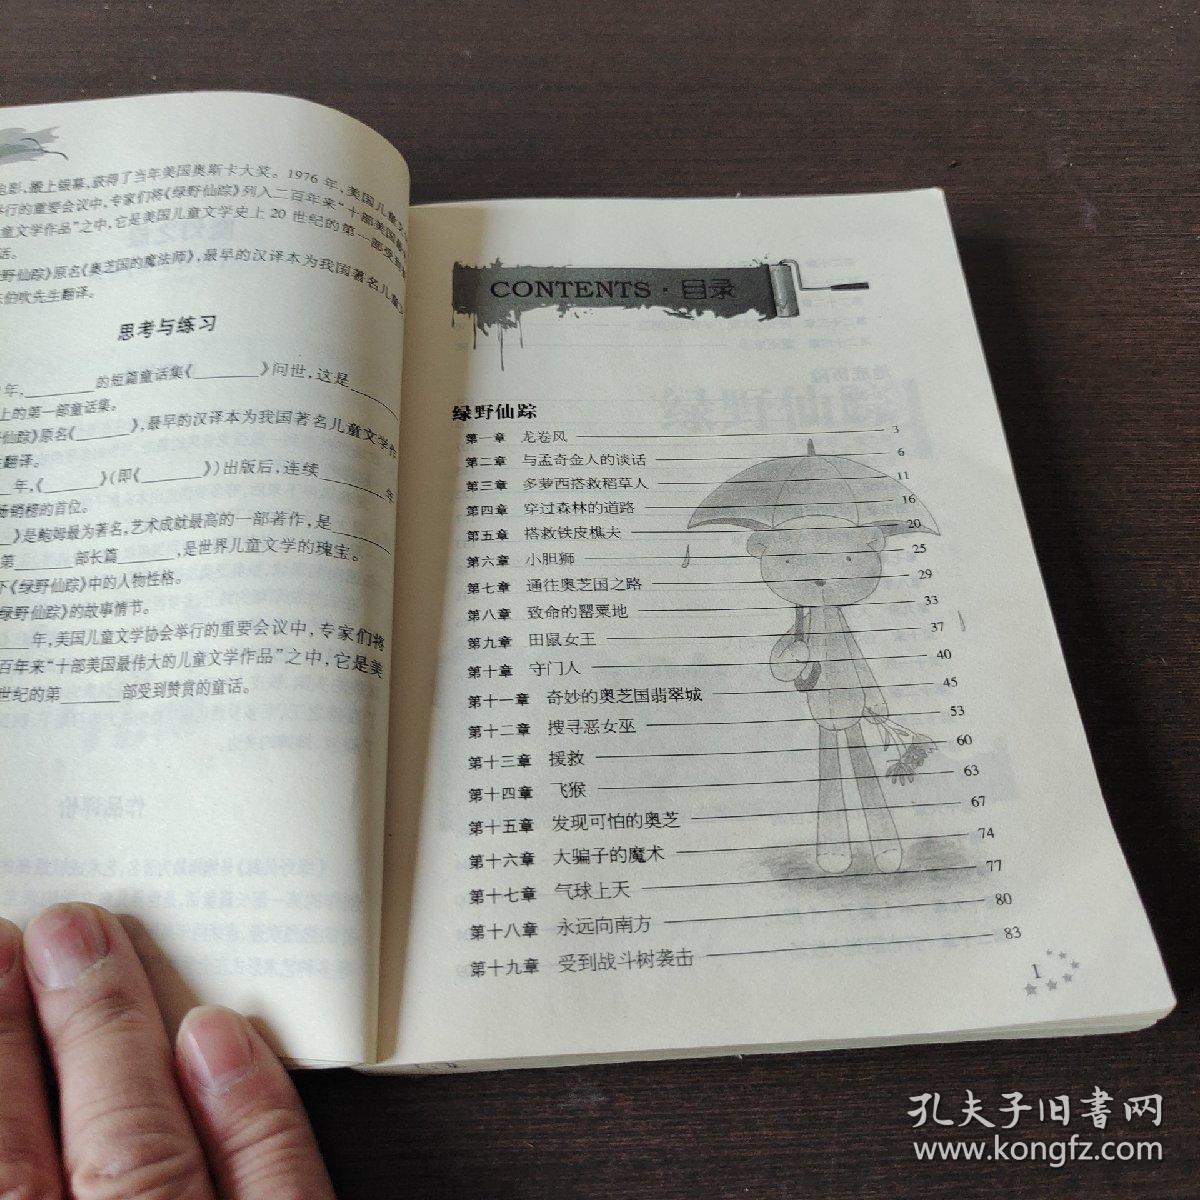 电影,搬上银幕,获得了当年美国奥斯卡大奖。1976年,美国儿童文
举行的重要会议中,专家们将《绿野仙踪》列入二百年来“十部美国最
童文学作品”之中,它是美国儿童文学史上20世纪的第一部受到
话。
野仙踪》原名《奥芝国的魔法师》,最早的汉译本为我国著名儿童
伯吹先生翻译。
思考与练习
年,______的短篇童话集《______》问世,这是______
上的第一部童话集。
仙踪》原名《______》,最早的汉译本为我国著名儿童文学作
翻译。
年,《______》(即《______》)出版后,连续______年
畅销榜的首位。
》是鲍姆最为著名,艺术成就最高的一部著作,是______
第______部长篇______,是世界儿童文学的瑰宝。
下《绿野仙踪》中的人物性格。
绿野仙踪》的故事情节。
年,美国儿童文学协会举行的重要会议中,专家们将
百年来“十部美国最伟大的儿童文学作品”之中,它是美
世纪的第______部受到赞赏的童话。
CONTENTS·目录
绿野仙踪
第一章 龙卷风 3
第二章 与孟奇金人的谈话 6
第三章 多萝西搭救稻草人 11
第四章 穿过森林的道路 16
第五章 搭救铁皮樵夫 20
第六章 小胆狮 25
第七章 通往奥芝国之路 29
第八章 致命的罂粟地 33
第九章 田鼠女王 37
第十章 守门人 40
第十一章 奇妙的奥芝国翡翠城 45
第十二章 搜寻恶女巫 53
第十三章 援救 60
第十四章 飞猴 63
第十五章 发现可怕的奥芝 67
第十六章 大骗子的魔术 74
第十七章 气球上天 77
第十八章 永远向南方 80
第十九章 受到战斗树袭击 83
1
孔夫子旧书网
www.kongfz.com